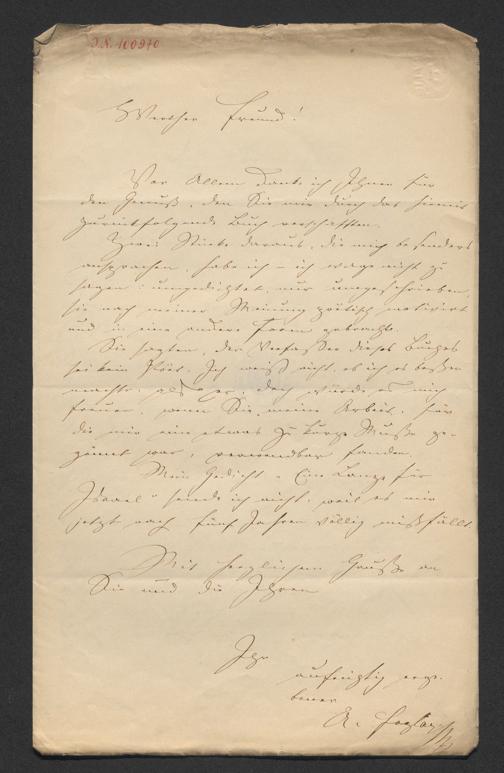 I.N. 100970
Werther Freund!
Vor Allem danke ich Ihnen für
den Genuß, den Sie mir durch das hiemit
zurückfolgende Buch verschafften.
Zwei Stücke daraus, die mich besonders
ansprachen, habe ich – ich wage nicht zu
sagen: umgedichtet, nur umgeschrieben,
sie nach meiner Meinung poetisch motivirt
und in eine andere Form gebracht.
Sie sagten, der Verfasser dieses Buches
sei kein Poet. Ich weiß nicht, ob ich es besser
machte als er, doch würde es mich
freuen, wenn Sie meine Arbeit, für
die mir eine etwas zu kurze Muße ge-
gönnt war, verwendbar fanden.
Mein Gedicht „Eine Lanze für
Israel" sende ich nicht, weil es mir
jetzt nach fünf Jahren völlig mißfällt.
Mit herzlichem Gruße an
Sie und die Ihren
Ihr
aufrichtig erge-
bener
A.